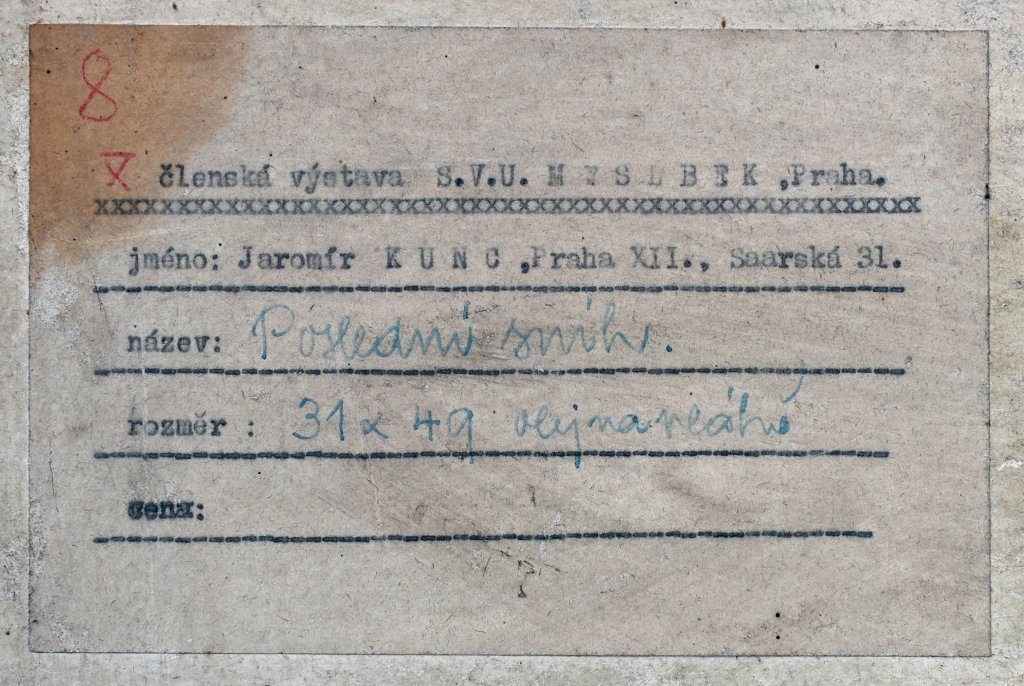 8
X členská výstava S.V.U. M Y S L B E K ,Praha.
xxxxxxxxxxxxxxxxxxxxxxxxxxxxxxxxxxxxxxxxxxxxxxxxxx
jméno: Jaromír K U N C ,Praha XII., Saarská 31.
název: Poslední sníh.
rozměr : 31 x 49 olej na plátně
cena: